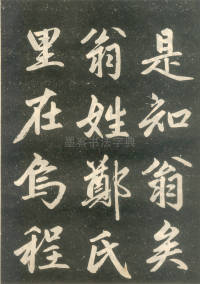 是知翁矣
翁姓鄭氏
里在烏程
墨香书法字典